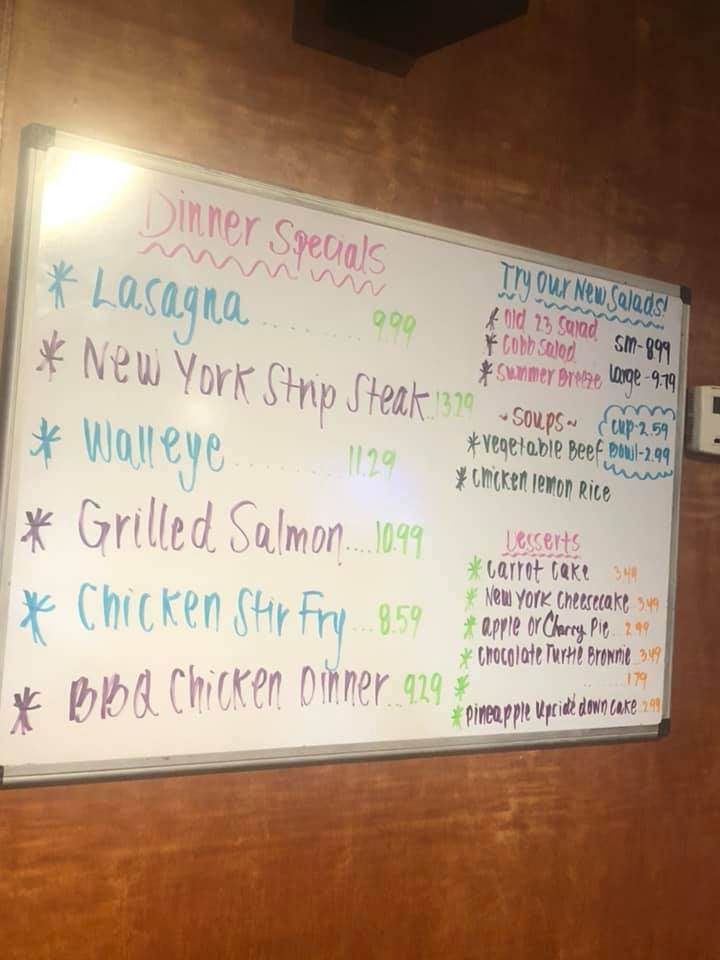 Dinner Specials
* Lasagna ........ 9.99
* New York Strip Steak 13.29
* Walleye ........ 11.29
* Grilled Salmon.... 10.99
* Chicken Stir Fry ... 8.59
* BBQ Chicken Dinner.. 9.29
Try Our New Salads!
* Old 23 Salad
* Cobb Salad
* Summer Breeze
Sm-8.99
Large-9.79
~Soups~
Cup-2.59
Bowl-2.99
* Vegetable Beef
* Chicken lemon Rice
Desserts
* Carrot Cake 3.49
* New York Cheesecake 3.49
* apple or Cherry Pie 2.99
* Chocolate Turtle Brownie 3.49
* ...... 1.79
* Pineapple Upside down Cake 2.99